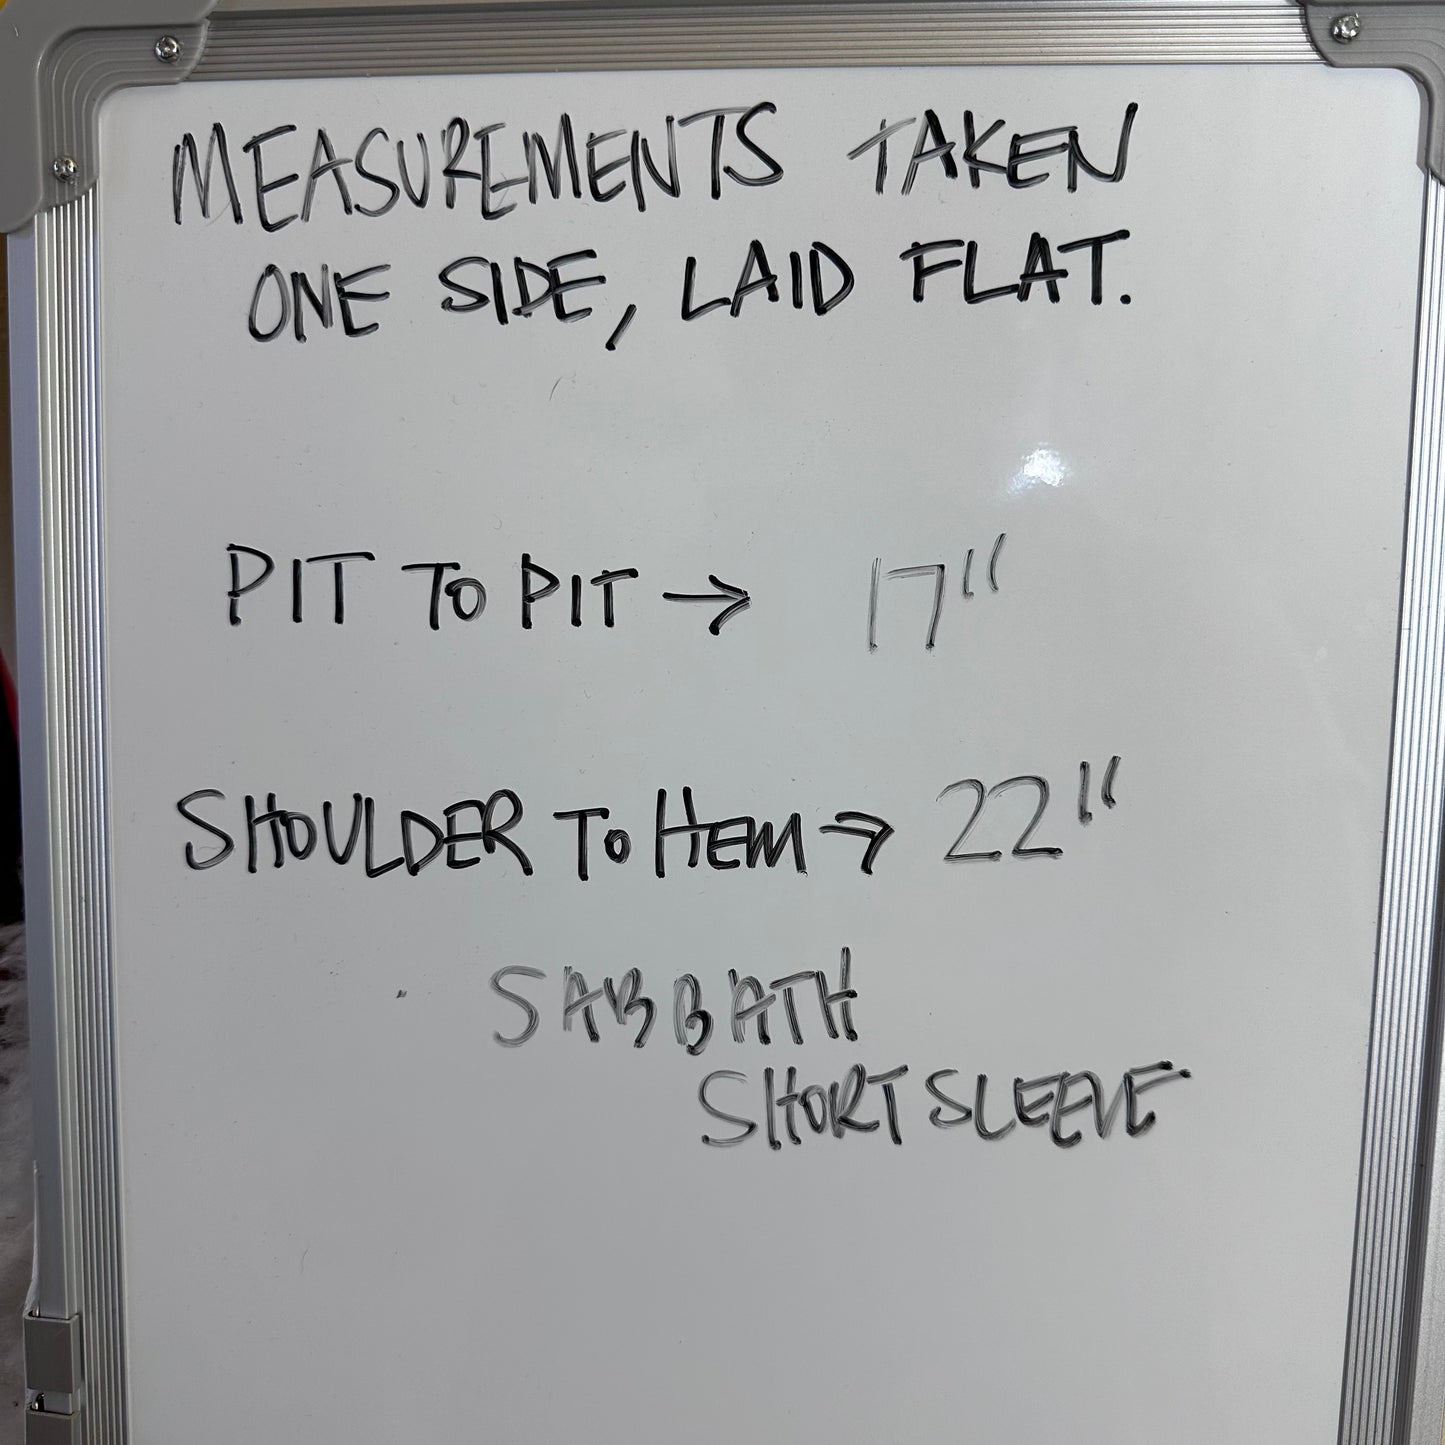 MEASUREMENTS TAKEN
ONE SIDE, LAID FLAT.
PIT TO PIT → 17"
SHOULDER TO HEM → 22"
SABBATH
SHORT SLEEVE